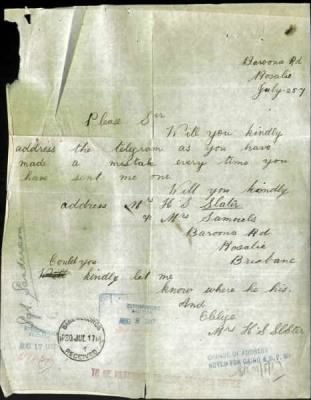 Baroona Rd
Rosalie
July 25 7
Please Sir
Will you kindly
address the telegram as you have
made a mistak every time you
have sent me one
Will you kindly
address Mrs H S Slater
% Mrs Samuels
Baroona Rd
Rosalie
Brisbane
Could you
kindly let me
know where he his.
And
Oblige
Mrs H S Slater
RECEIVED
30 JUL 17
AUG 17
CHANGE OF ADDRESS
TO BE